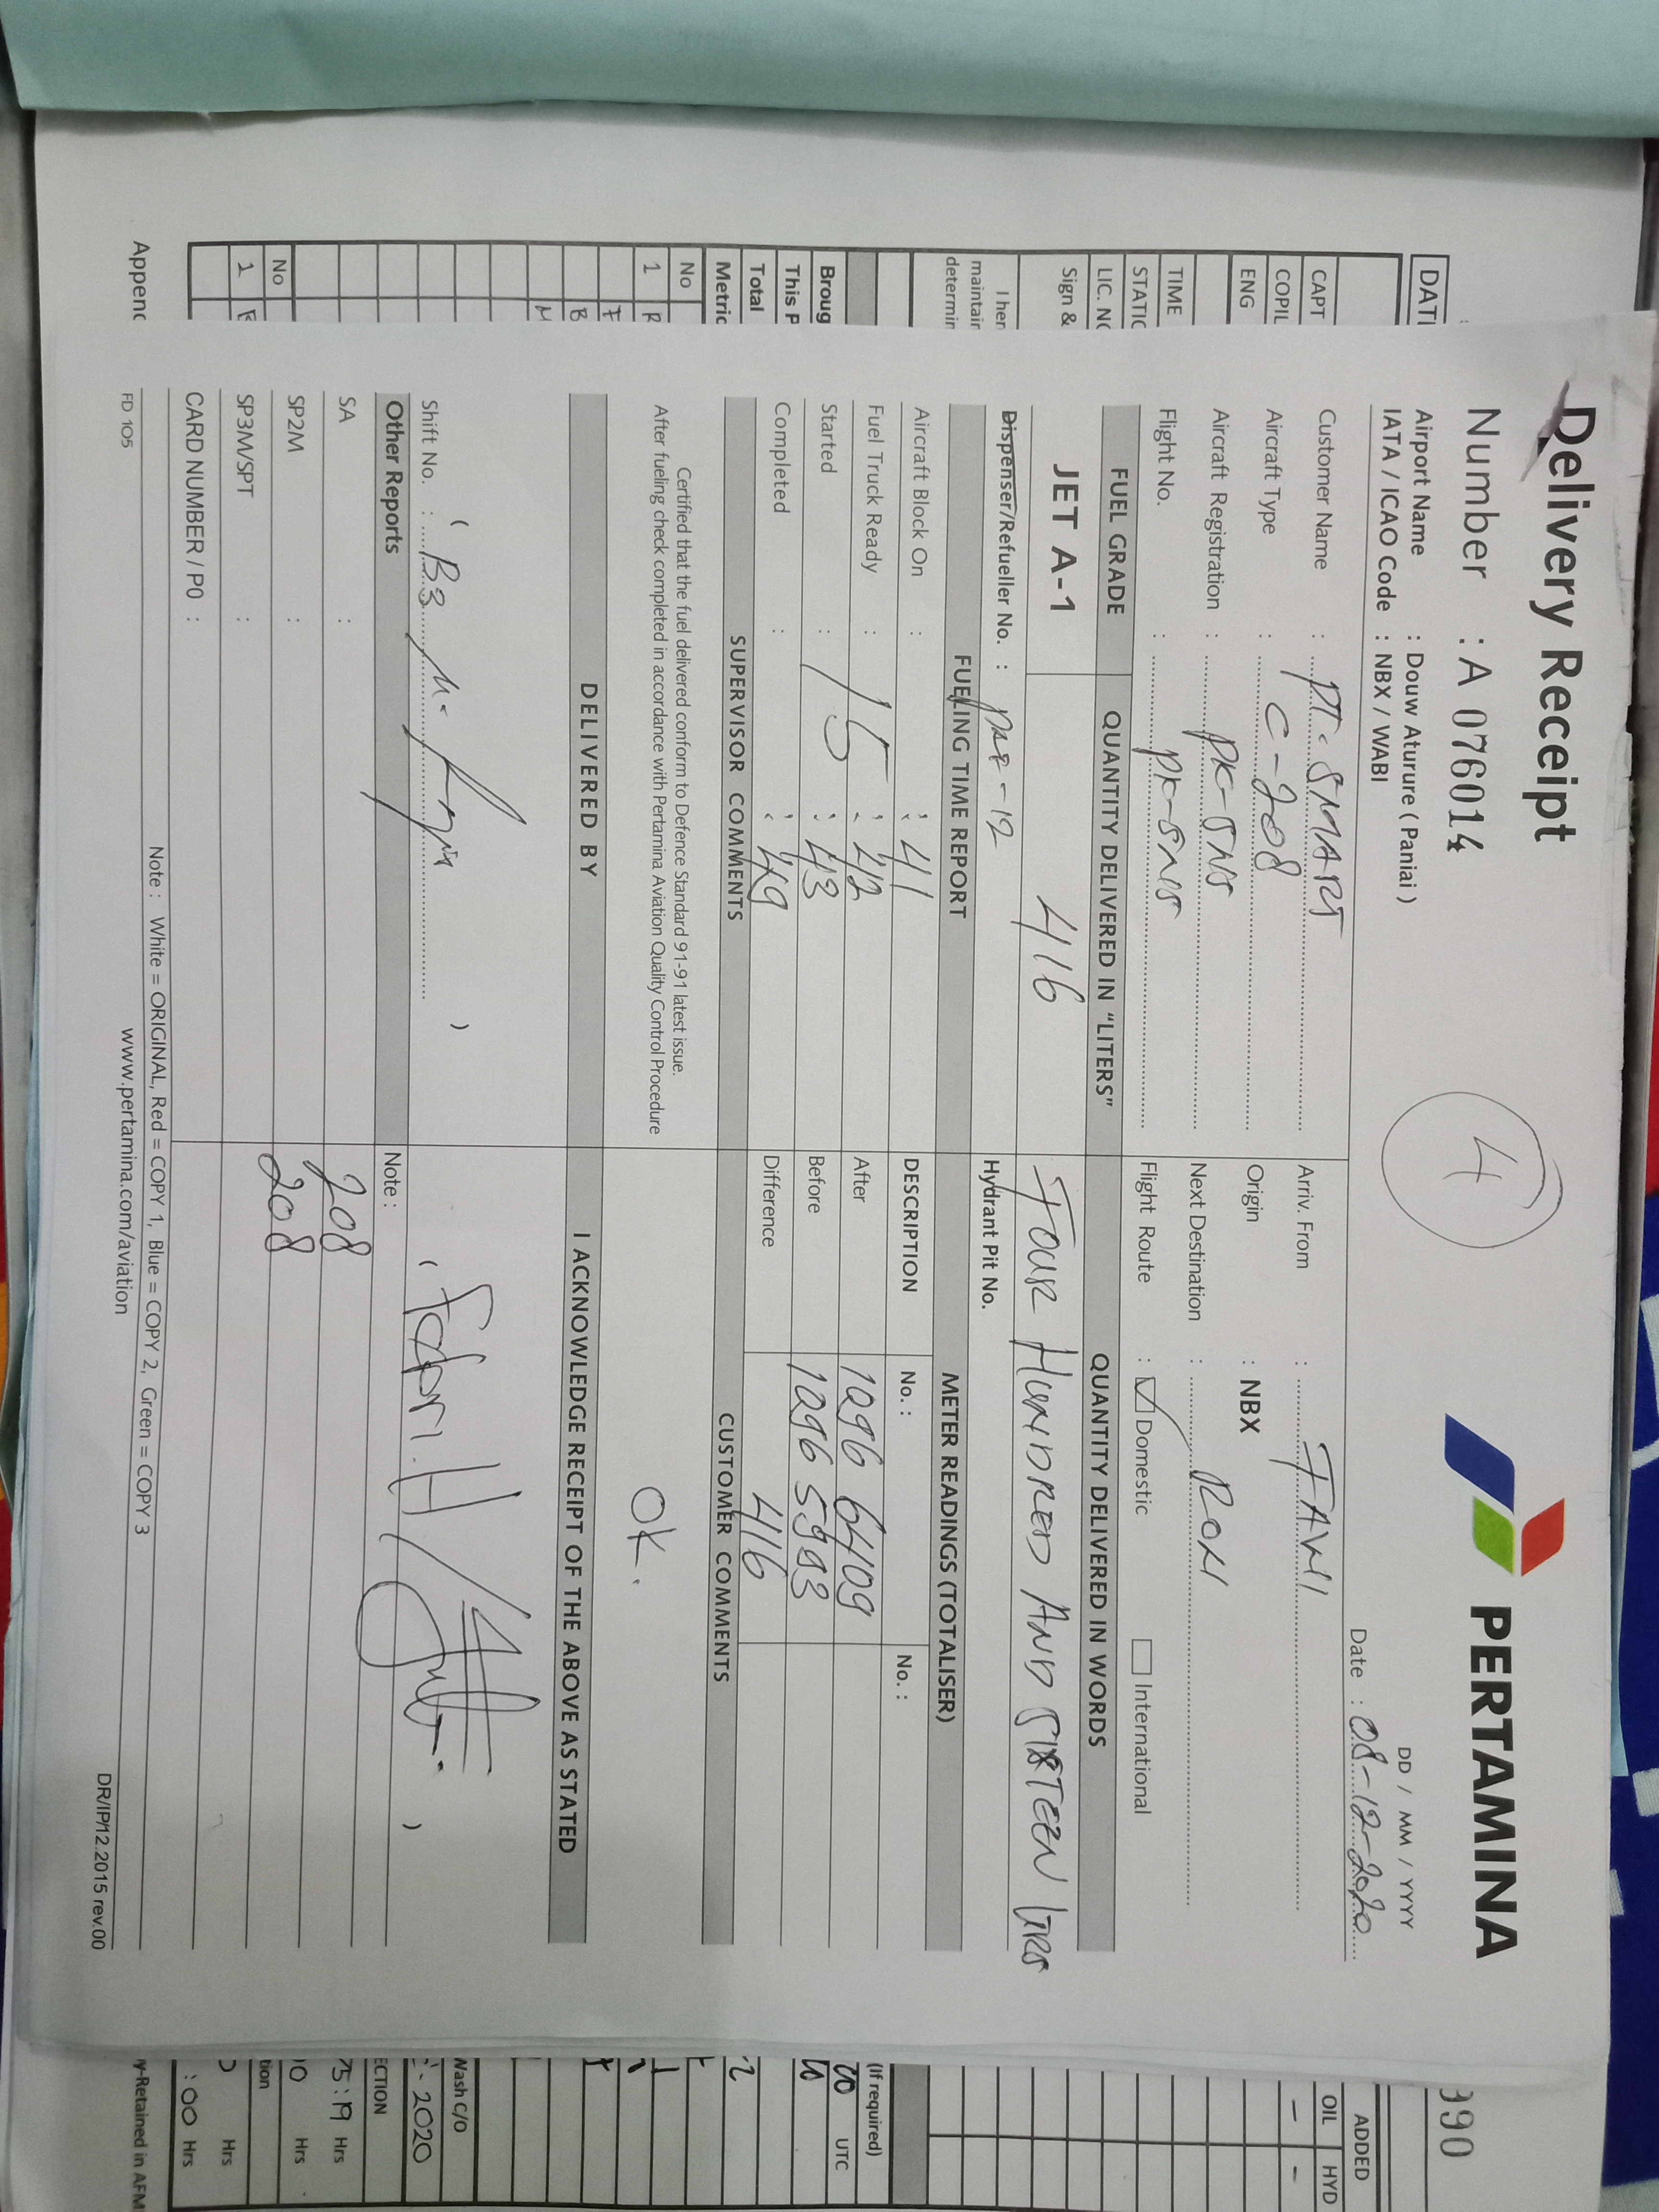 Delivery Receipt
PERTAMINA
Number : A 076014
4
Airport Name : Douw Aturure ( Paniai )
DD / MM / YYYY
IATA / ICAO Code : NBX / WABI
Date : 08-12-2020
Customer Name : PT. SMART
Arriv. From : FAWI
Aircraft Type : C-208
Origin : NBX
Aircraft Registration : PK-SNS
Next Destination : RON
Flight No. : PK-SNS
Flight Route : Domestic International
FUEL GRADE QUANTITY DELIVERED IN "LITERS" QUANTITY DELIVERED IN WORDS
JET A-1 416 FOUR HUNDRED AND SIXTEEN LTRS
Dispenser/Refueller No. : Hydrant Pit No.
FUELING TIME REPORT METER READINGS (TOTALISER)
Aircraft Block On : : 41 DESCRIPTION No. : No. :
Fuel Truck Ready : : 42 After 1296 6409
Started : 15 : 43 Before 1296 5993
Completed : : 49 Difference 416
SUPERVISOR COMMENTS CUSTOMER COMMENTS
Certified that the fuel delivered conform to Defence Standard 91-91 latest issue.
After fueling check completed in accordance with Pertamina Aviation Quality Control Procedure
OK.
DELIVERED BY I ACKNOWLEDGE RECEIPT OF THE ABOVE AS STATED
Shift No. : ( B3 ) ( )
Other Reports Note :
SA : 208
SP2M : 208
SP3M/SPT :
CARD NUMBER / PO :
Note : White = ORIGINAL, Red = COPY 1, Blue = COPY 2, Green = COPY 3
FD 105 www.pertamina.com/aviation DR/IP/12.2015 rev.00
DAT
CAPT
COPIL
ENG
TIME
STATIC
LIC. NO
Sign &
I her
maintair
determin
Broug
This P
Total
Metric
No
1 R
F
B
M
No
1
Appenc
990
ADDED
OIL HYD
- -
(If required)
20 UTC
Wash C/O
- 2020
ECTION
75:19 Hrs
10 Hrs
tion
Hrs
:00 Hrs
y-Retained in AFM